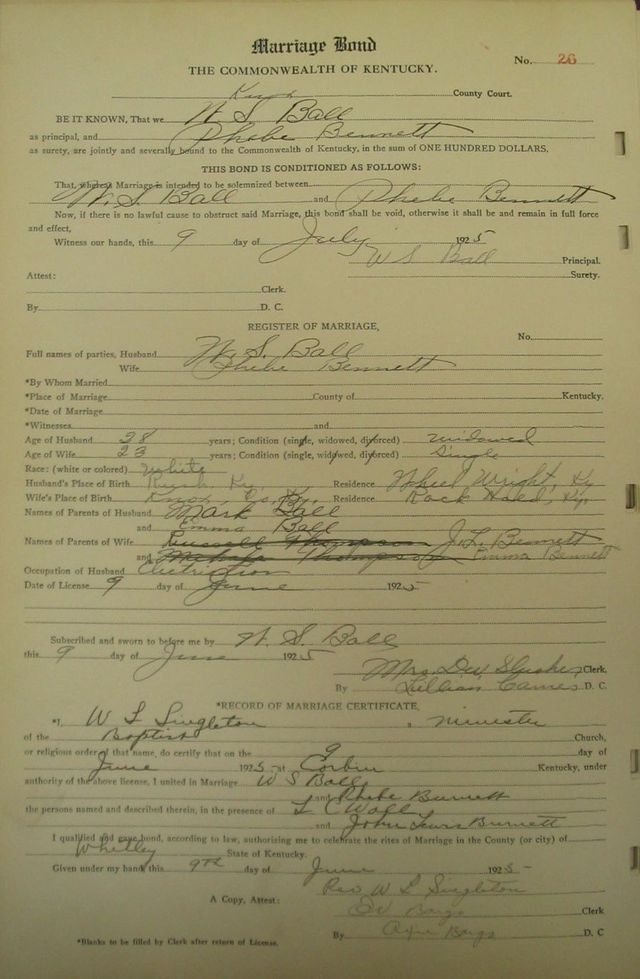 Marriage Bond
No. 26
THE COMMONWEALTH OF KENTUCKY.
Knox County Court.
BE IT KNOWN, That we W. S. Ball
as principal, and Phebe Bennett
as surety, are jointly and severally bound to the Commonwealth of Kentucky, in the sum of ONE HUNDRED DOLLARS,
THIS BOND IS CONDITIONED AS FOLLOWS:
That, whereas Marriage is intended to be solemnized between
W. S. Ball and Phebe Bennett
Now, if there is no lawful cause to obstruct said Marriage, this bond shall be void, otherwise it shall be and remain in full force
and effect,
Witness our hands, this 9 day of July 1925
W S Ball Principal.
Attest: Surety.
Clerk.
By D. C.
REGISTER OF MARRIAGE,
No.
Full names of parties, Husband W. S. Ball
Wife Phebe Bennett
*By Whom Married
*Place of Marriage County of Kentucky.
*Date of Marriage
*Witnesses and
Age of Husband 28 years; Condition (single, widowed, divorced) widowed
Age of Wife 23 years; Condition (single, widowed, divorced) Single
Race: (white or colored) White
Husband's Place of Birth Ky. Residence Wheel Wright, Ky
Wife's Place of Birth Knox, Co. Ky. Residence Rock Hold, Ky.
Names of Parents of Husband Mark Ball
and Emma Ball
Names of Parents of Wife Russell Thompson J. L. Bennett
and Thompson Emma Bennett
Occupation of Husband Electrician
Date of License 9 day of June 1925
Subscribed and sworn to before me by W. S. Ball
this 9 day of June 1925
Mrs. D W Clerk,
By Lillian D. C.
*RECORD OF MARRIAGE CERTIFICATE,
*I, W L Singleton a minister
of the Baptist Church,
or religious order of that name, do certify that on the 9 day of
June 1925 at Corbin Kentucky, under
authority of the above license, I united in Marriage W S Ball
and Phebe Burnett
the persons named and described therein, in the presence of L C Wall
and John Lewis Burnett
I qualified and gave bond, according to law, authorizing me to celebrate the rites of Marriage in the County (or city) of
Whitley State of Kentucky.
Given under my hand, this 9th day of June 1925
Rev W L Singleton
A Copy, Attest: Clerk
By D. C
*Blanks to be filled by Clerk after return of License.